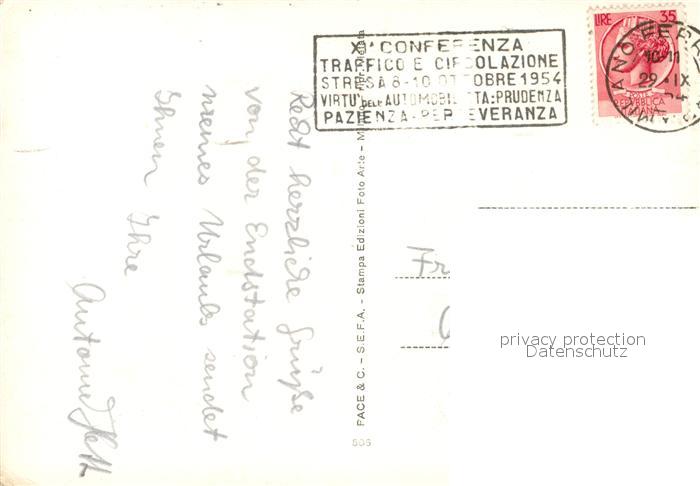 Recht herzliche Grüße
von der Endstation
meines Urlaubs sendet
Ihnen Ihre
XIª CONFERENZA
TRAFFICO E CIRCOLAZIONE
STRESA 8-10 OTTOBRE 1954
VIRTÙ DELL'AUTOMOBILISTA: PRUDENZA
PAZIENZA - PERSEVERANZA
LIRE 35
POSTE
REPUBBLICA
ITALIANA
MILANO FERR
10-11
29 · IX
54
PACE & C. - S.E.F.A. - Stampa Edizioni Foto Arte
506
Fr
privacy protection
Datenschutz